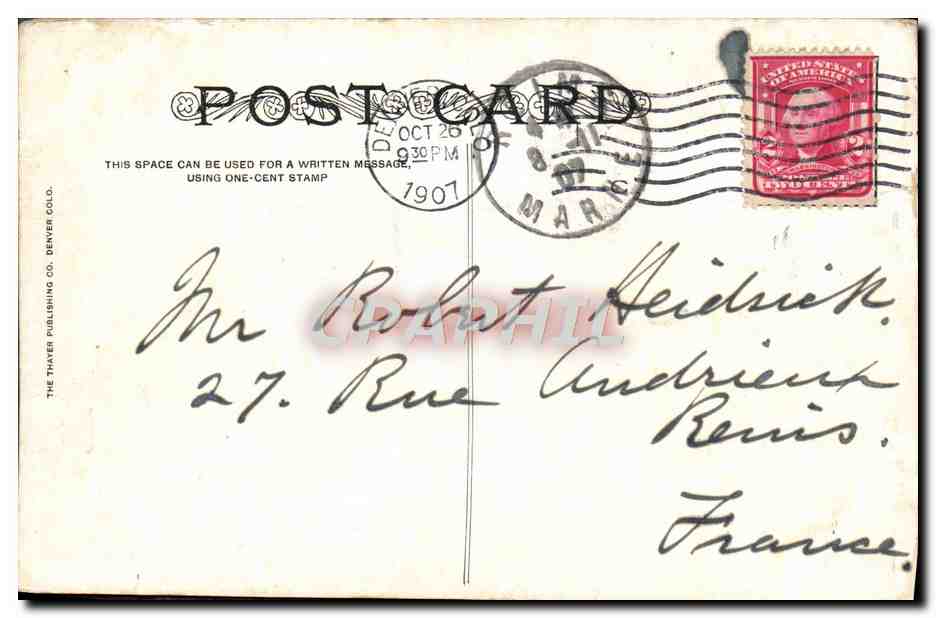 POST CARD
THIS SPACE CAN BE USED FOR A WRITTEN MESSAGE,
USING ONE-CENT STAMP
THE THAYER PUBLISHING CO. DENVER COLO.
OCT 26
9 30 PM
1907
MARNE
UNITED STATES
OF AMERICA
2 2
TWO CENTS
CPAPHIL
Mr Robert Heidsick.
27. Rue Andrieux
Reims.
France.